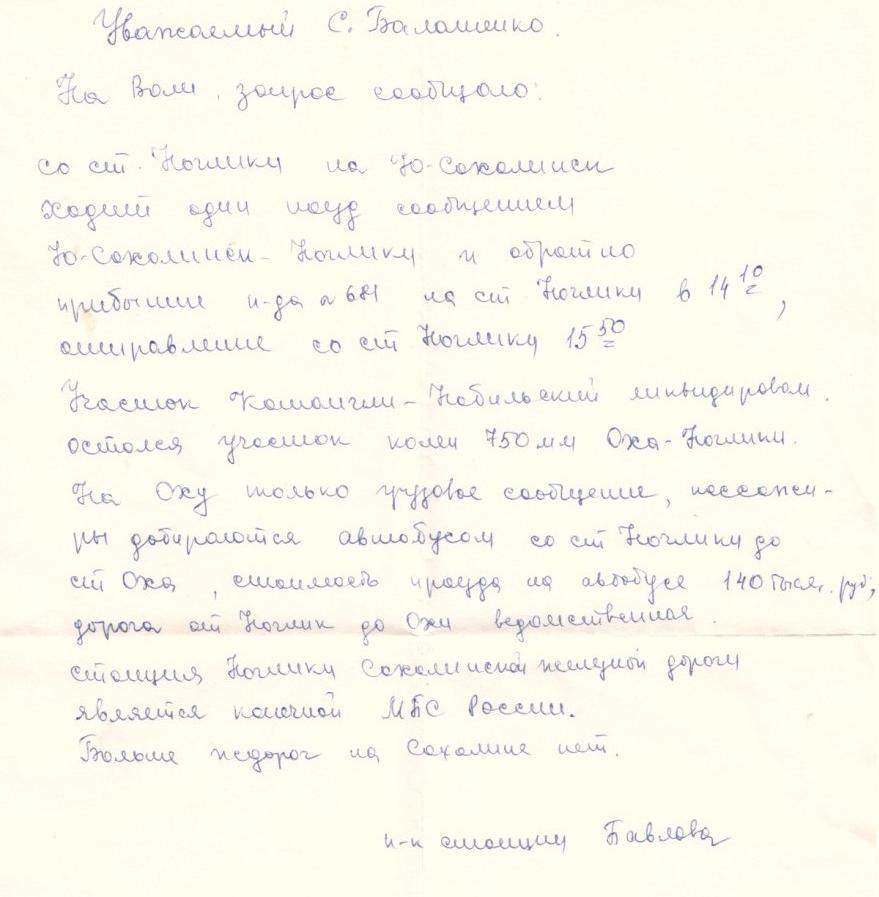 Уважаемый С. Балашенко.
На Ваш запрос сообщаю:
со ст. Ноглики на Ю-Сахалинск
ходит один поезд сообщением
Ю-Сахалинск-Ноглики и обратно
прибытие п-да № 681 на ст Ноглики в 14 10,
отправление со ст Ноглики 15 50
Участок Катангли-Набильский ликвидирован.
остался участок колеи 750 мм Оха-Ноглики.
На Оху только грузовое сообщение, пассажи-
ры добираются автобусом со ст Ноглики до
ст Оха, стоимость проезда на автобусе 140 тысяч. руб;
дорога от Ноглик до Охи ведомственная.
станция Ноглики Сахалинской железной дороги
является конечной МПС России.
Больше ж.дорог на Сахалине нет.
н-к станции Павлова